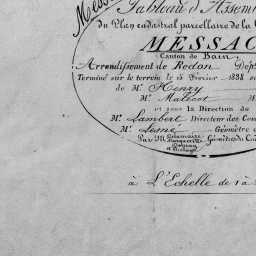 Tableau d'Assem
du Plan cadastral parcellaire de la C
MESSAC
Canton de Bain,
Arrondissement de Redon Dép
Terminé sur le terrain le 15 Février 1838 so
de Mr. Henry
Mr. Malecot
et sous la Direction de
Mr. Lambert Directeur des Con
Mr. Lesné Géomètre
Par M
Géomètres du C
à L'Echelle de 1 à